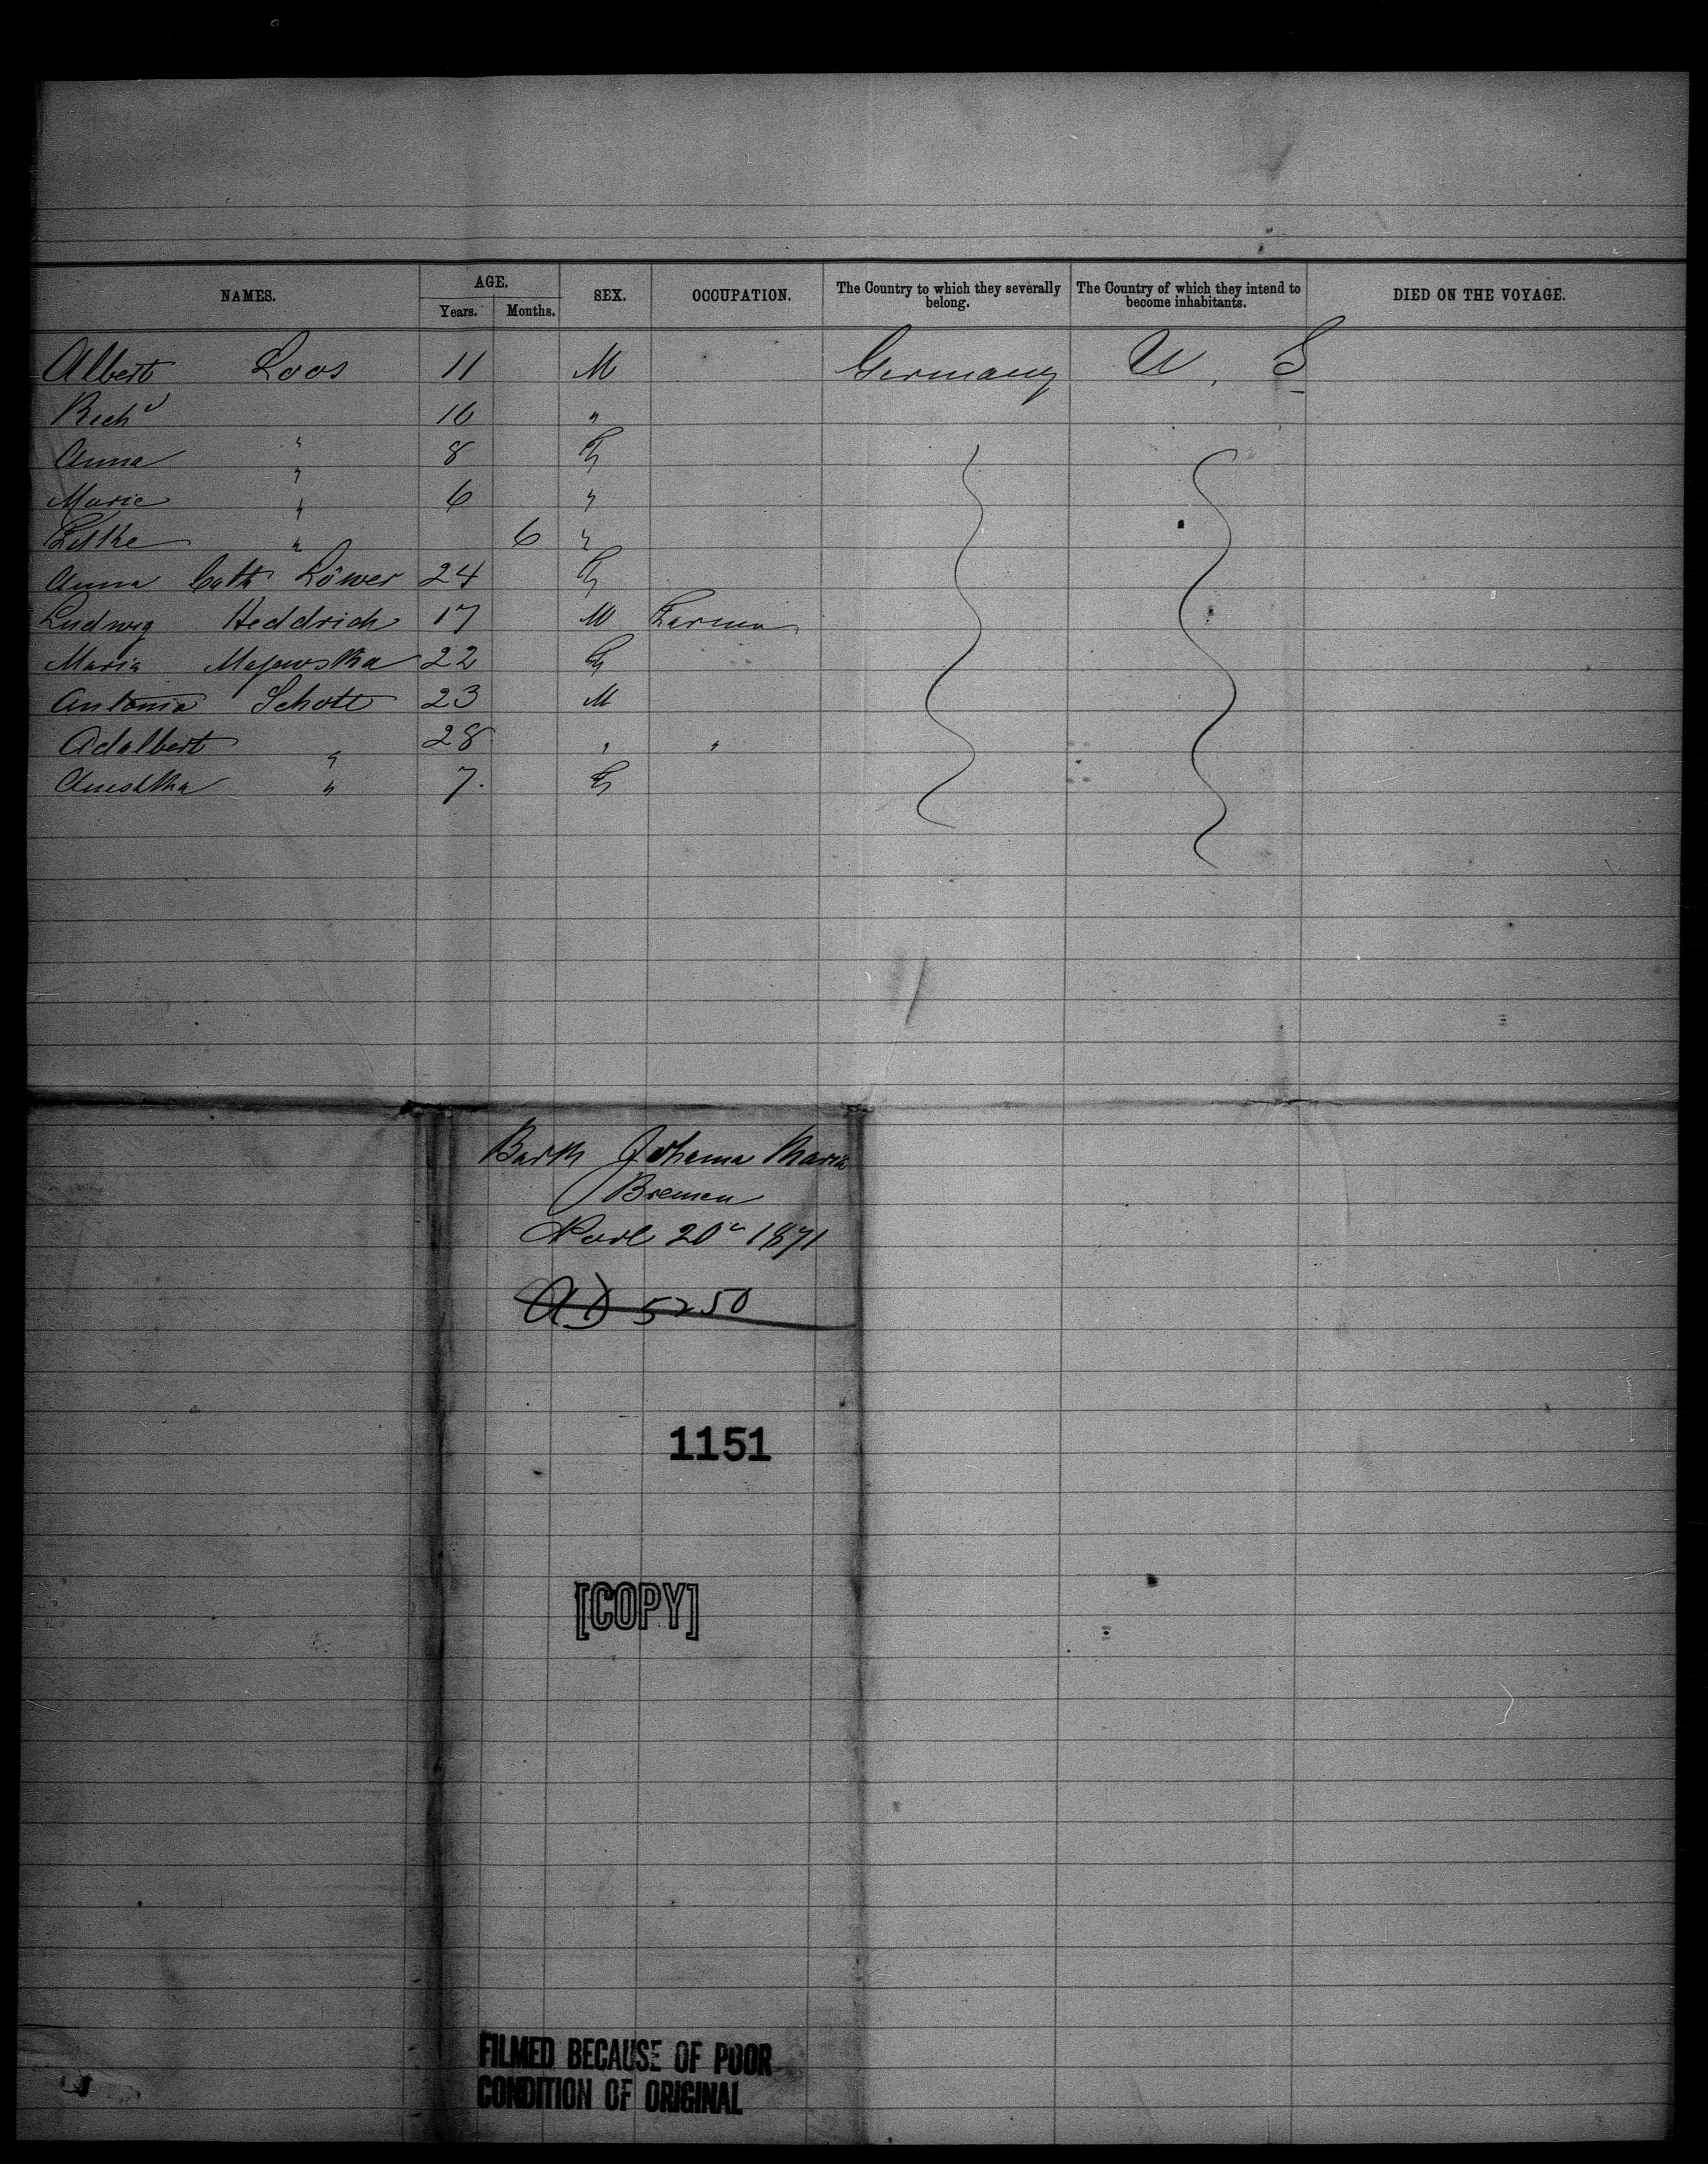 NAMES. AGE. SEX. OCCUPATION. The Country to which they severally belong. The Country of which they intend to become inhabitants. DIED ON THE VOYAGE.
Years. Months.
Albert Loos 11 M Germany U. S
Rich^d " 10 "
Anna " 8 F
Marie " 6 "
" 6 "
Anna Cath Löwer 24 F
Ludwig Heddrich 17 M Farmer
Maria Majewska 22 F
Antonia Schott 23 M
Adalbert " 28 " "
" 7. F
Bark Johanna Maria
Bremen
20 1871
5250
1151
[COPY]
FILMED BECAUSE OF POOR
CONDITION OF ORIGINAL